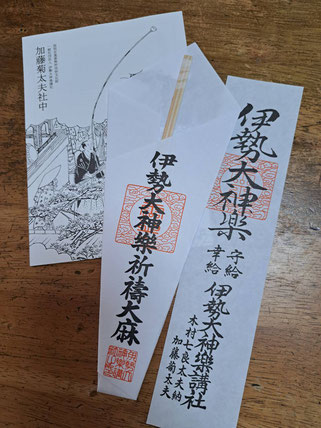 加藤菊太夫社中
伊勢大神樂祈禱大麻
伊勢大神樂
守給
幸給
伊勢大神樂講社
木村七良太夫納
加藤菊太夫